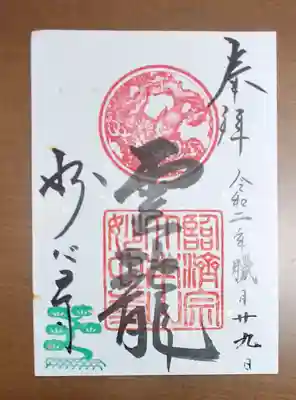 奉拝
令和二年臘月廿九日
雲龍
臨済宗
妙心寺